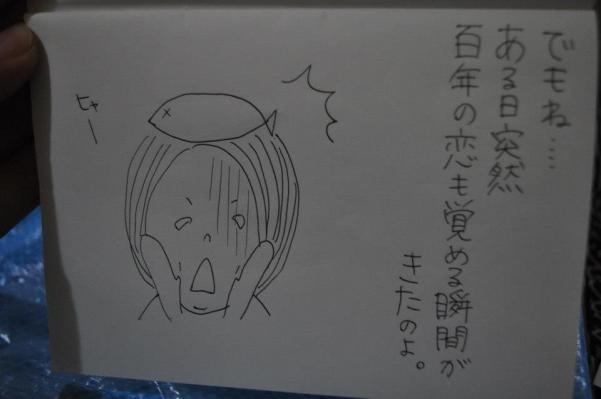 でもね‥‥
ある日突然
百年の恋も覚める瞬間が
きたのよ。
ヒャー